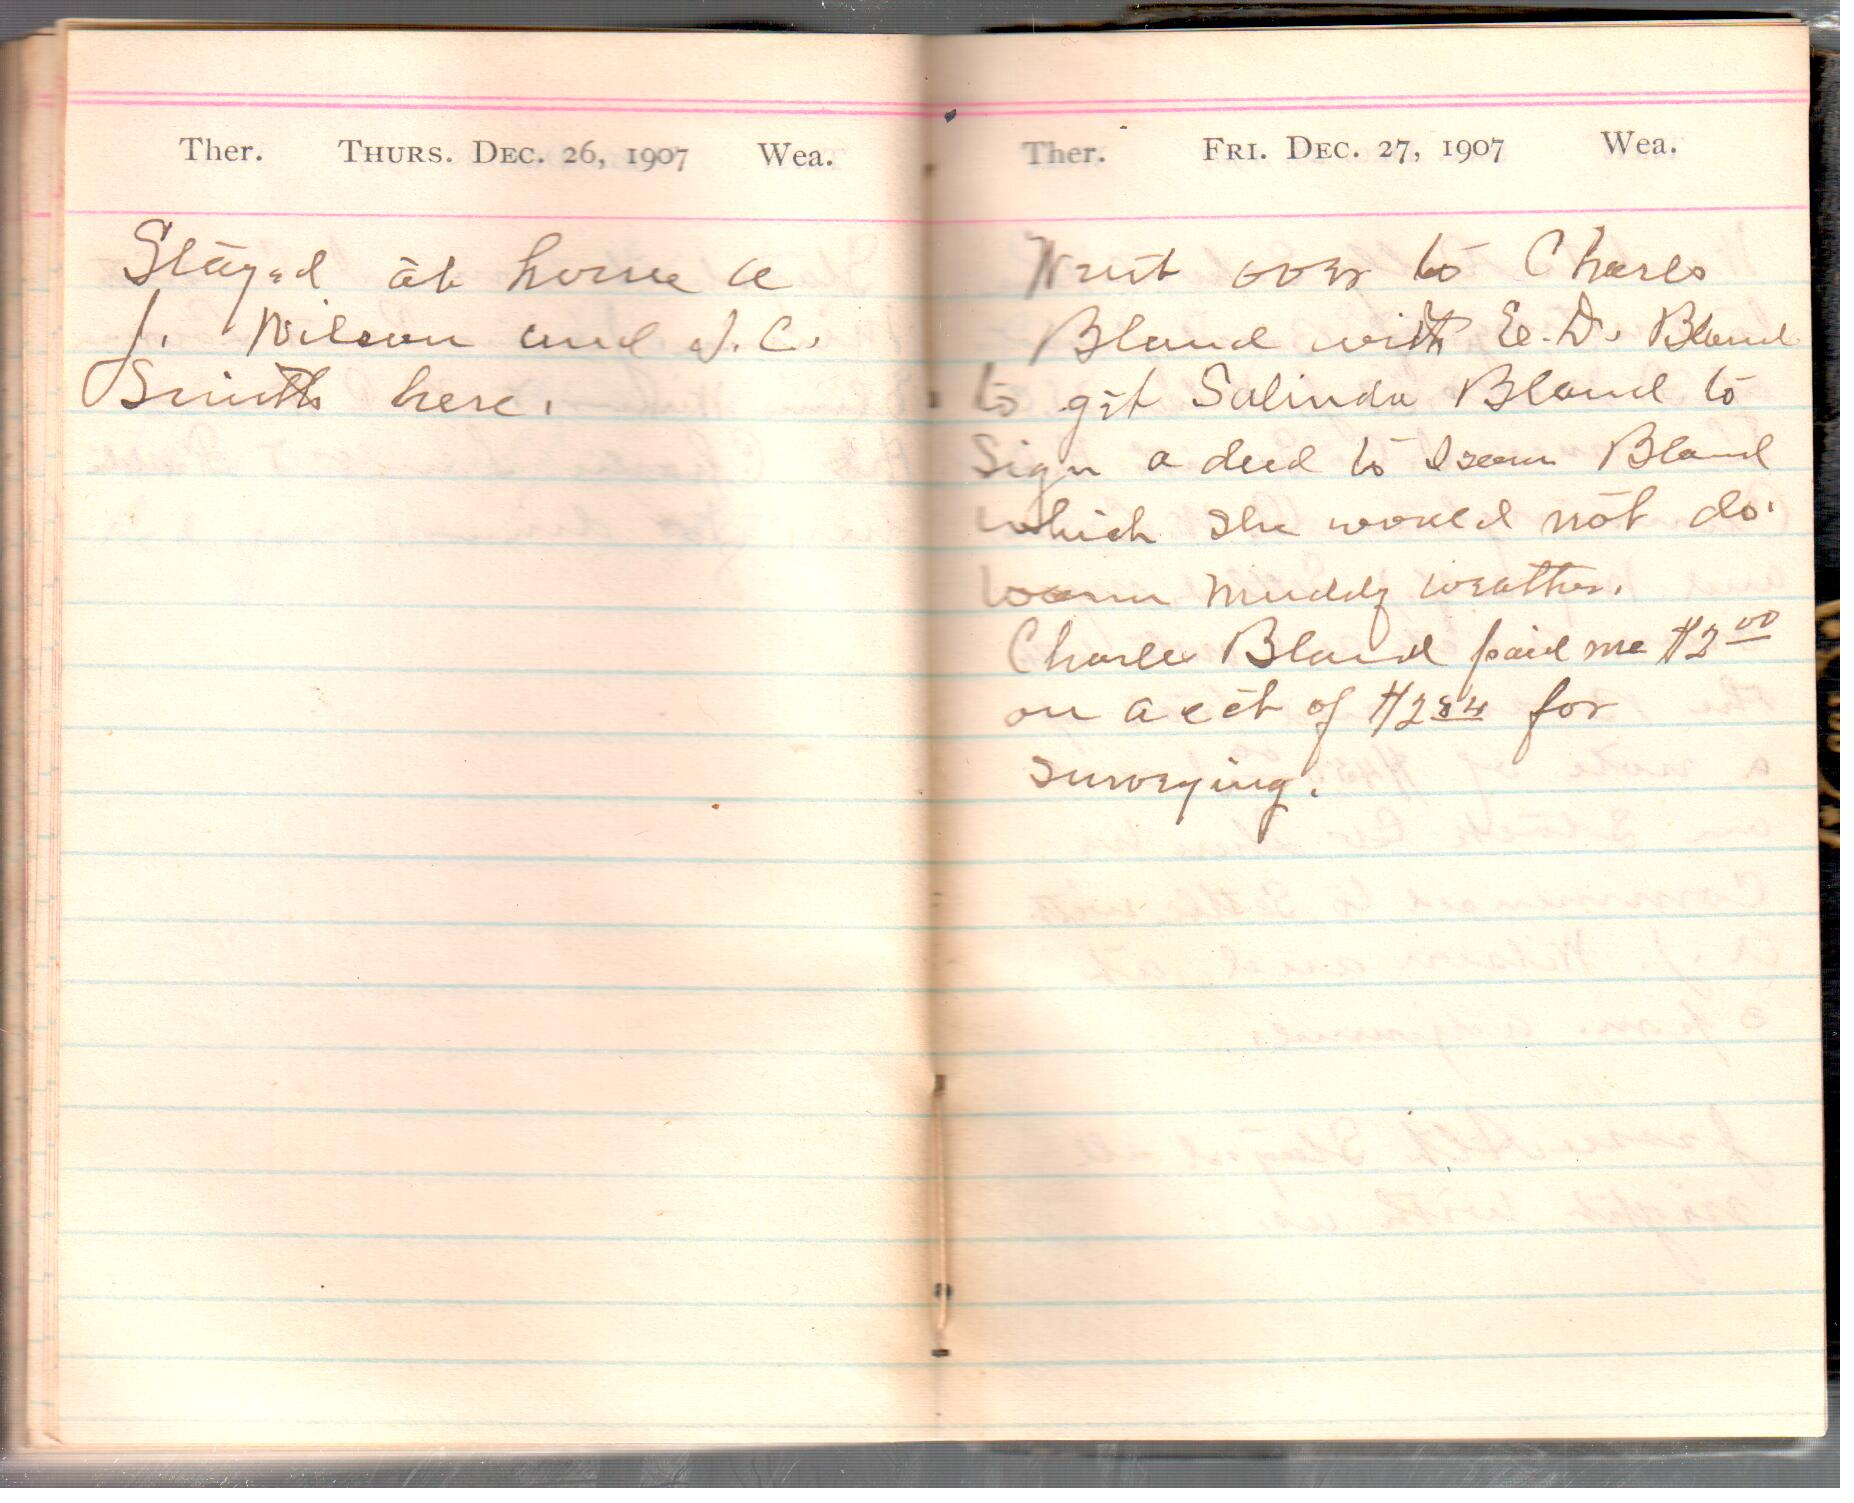 Ther. Thurs. Dec. 26, 1907 Wea.
Stayed at home a
J. Wilson and J. C.
Smith here.
Ther. Fri. Dec. 27, 1907 Wea.
Went over to Charles
Bland with E. D. Bland
to get Salinda Bland to
sign a deed to Bland
which she would not do.
warm muddy weather.
Charles Bland paid me $2 00
on acct of $2 84 for
surveying.